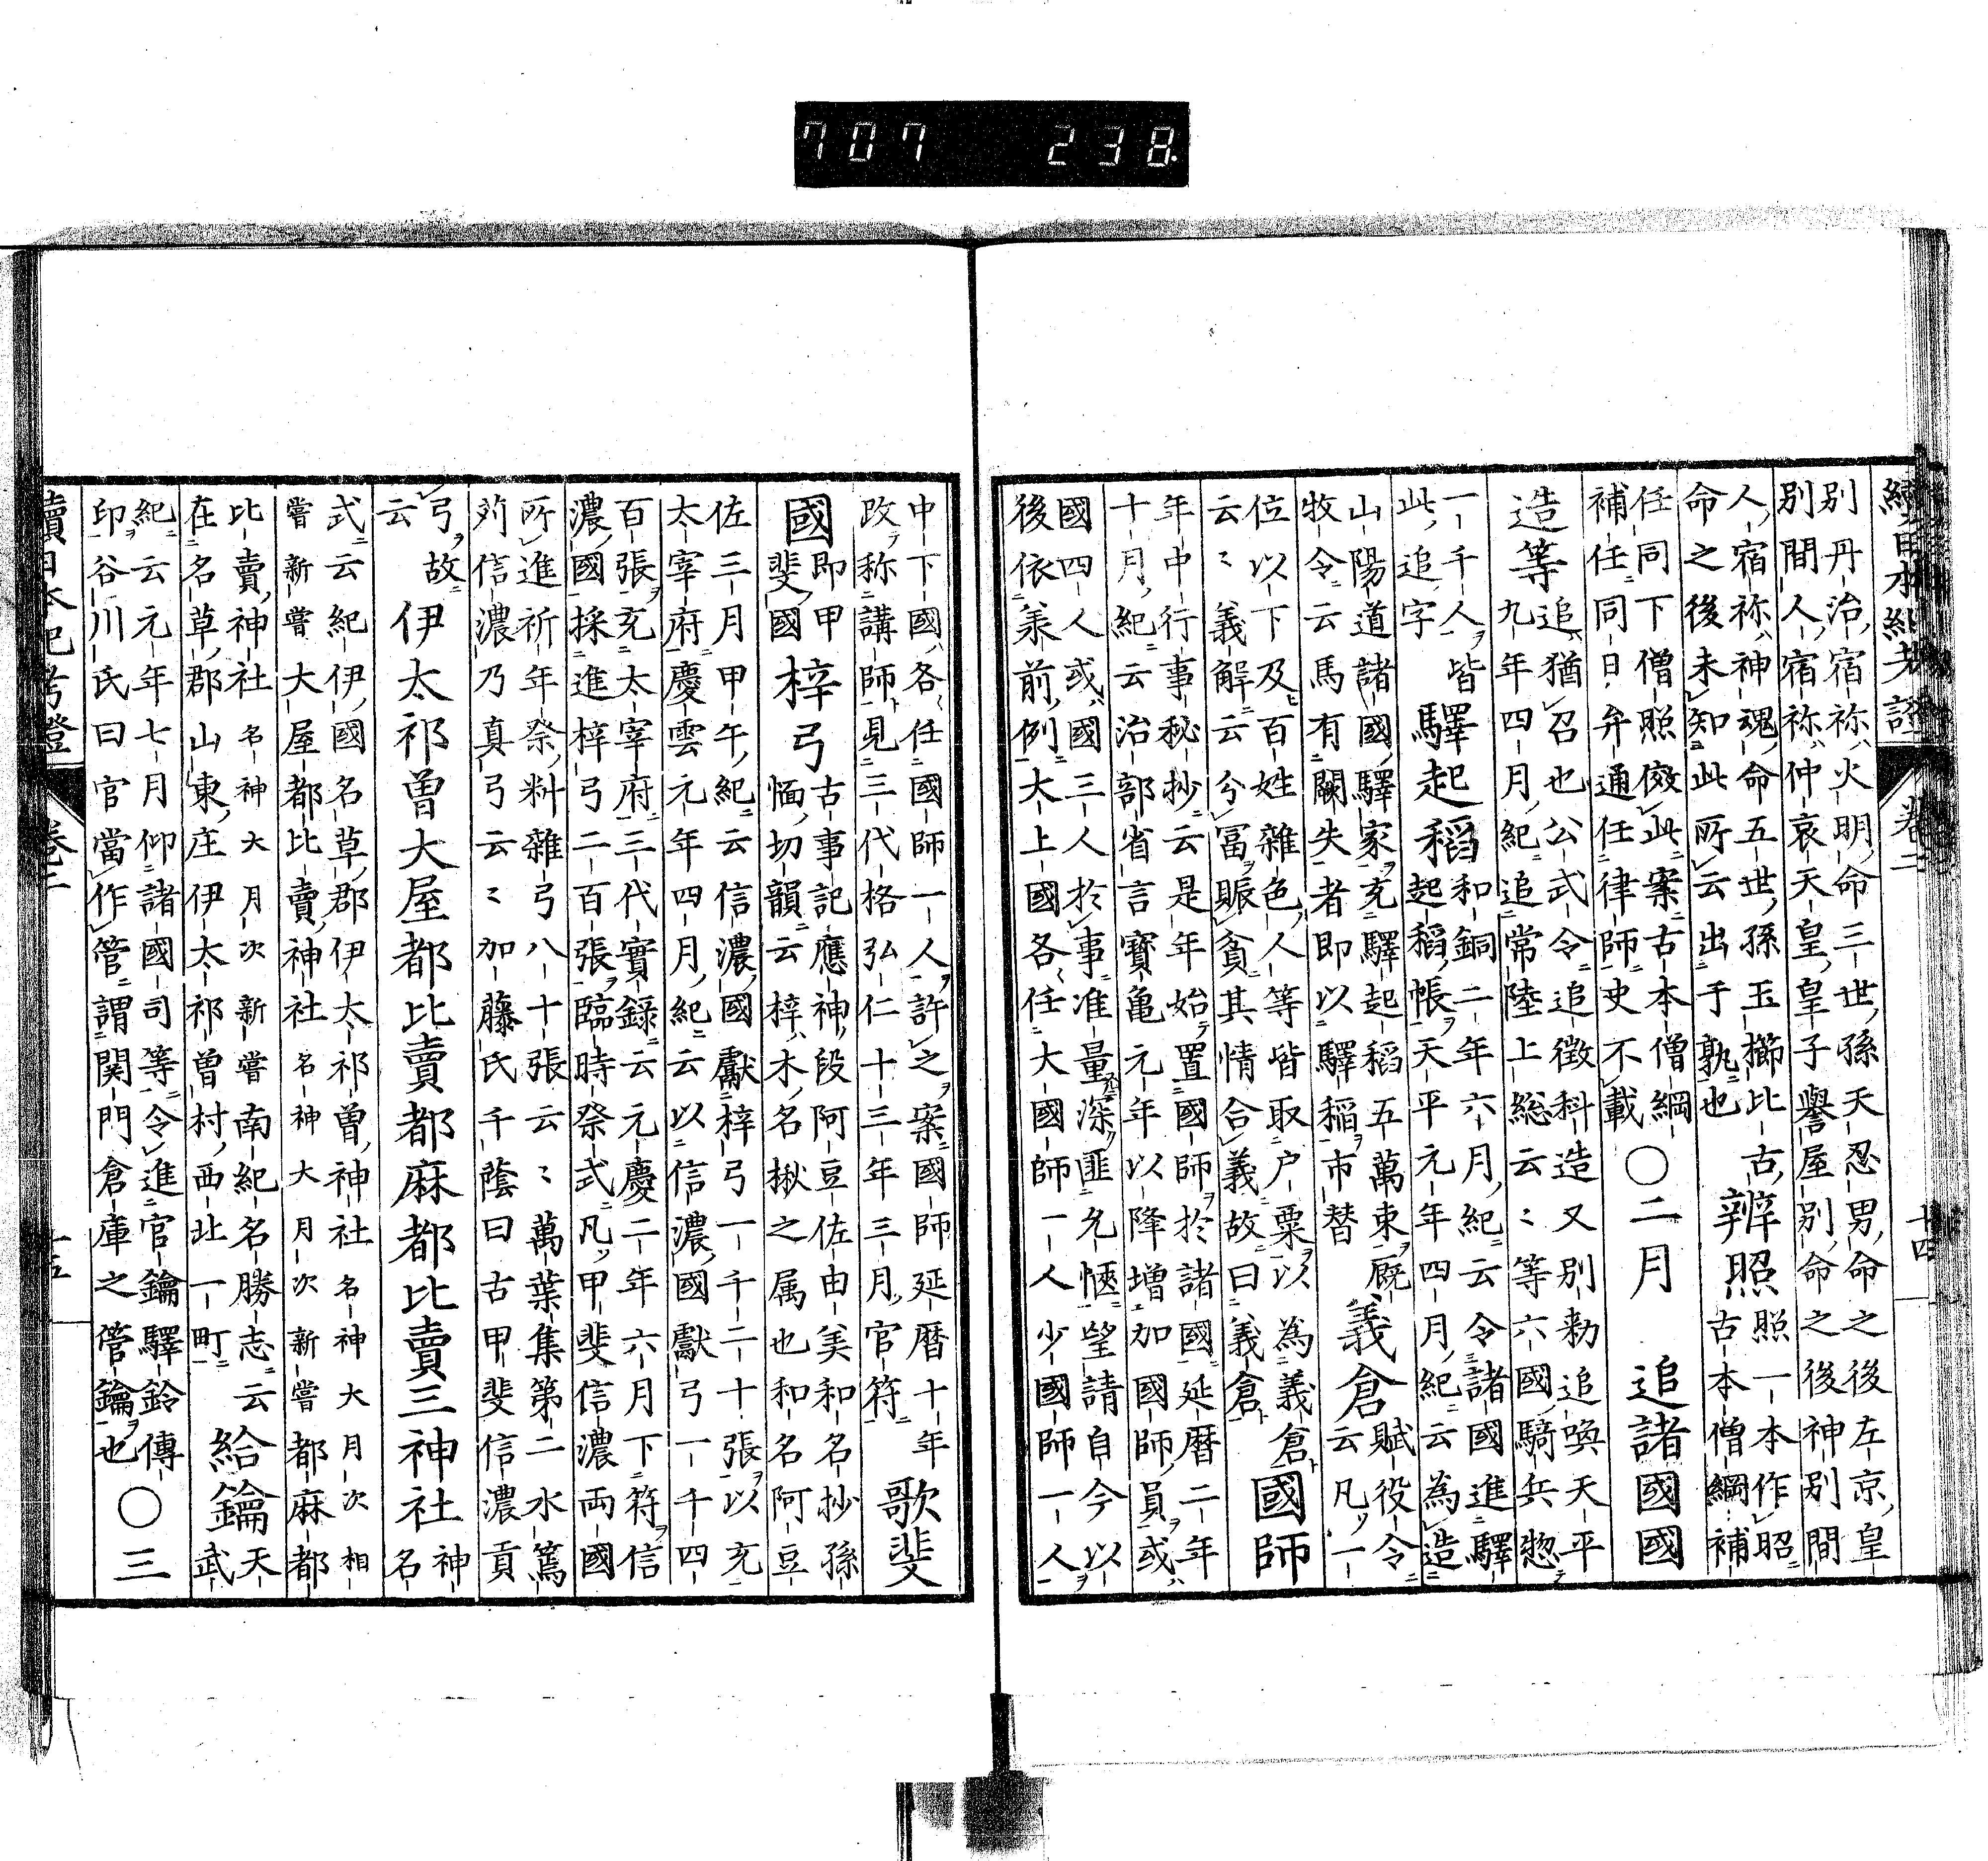 續日本紀考證 卷二 十四
別丹治宿祢火明命三世孫天忍男命之後左京皇
別間人宿祢仲哀天皇皇子譽屋別命之後神別間
人宿祢神魂命五世孫玉櫛比古
命之後未知此所云出于孰也
辨照
照一本作昭
古本僧綱補
任同下僧照儆此案古本僧綱
補任同日弁通任律師史不載
○二月 追諸國國
造等
追猶召也公式令追徴科造又別勅追喚天平
九年四月紀追常陸上総云〻等六國騎兵惣
一千人皆
此追字
驛起稻
和銅二年六月紀云令諸國進驛
起稻帳天平元年四月紀云為造
山陽道諸國驛家充驛起稻五萬束厩
牧令云馬有闕失者即以驛稲市替
義倉
賦役令
云凡一
位以下及百姓雜色人等皆取户粟以為義倉
云〻義解云兮冨賑貧其情合義故曰義倉
國師
年中行事秘抄云是年始置國師於諸國延暦二年
十月紀云治部省言寶亀元年以降増加國師員或
國四人或國三人於事准量深匪允愜望請自今以
後依兼前例大上國各任大國師一人少國師一人
中下國各任國師一人許之案國師延暦十年
改称講師見三代格弘仁十三年三月官符
歌斐
國
即甲
斐國
梓弓
古事記應神段阿豆佐由美和名抄孫
愐切韻云梓木名楸之属也和名阿豆
佐三月甲午紀云信濃國獻梓弓一千二十張以充
太宰府慶雲元年四月紀云以信濃國獻弓一千四
百張充太宰府三代實録云元慶二年六月下符信
濃國採進梓弓二百張臨時祭式凡甲斐信濃両國
所進祈年祭料雜弓八十張云〻萬葉集第二水篶
苅信濃乃真弓云〻加藤氏千蔭曰古甲斐信濃貢
弓故
云
伊太祁曽大屋都比賣都麻都比賣三神社
神
名
式云紀伊國名草郡伊太祁曽神社名神大月次相
嘗新嘗大屋都比賣神社名神大月次新嘗都麻都
比賣神社名神大月次新嘗南紀名勝志云
在名草郡山東庄伊太祁曽村西北一町
給鑰
天
武
紀云元年七月仰諸國司等令進官鑰驛鈴傳
印谷川氏曰官當作管謂関門倉庫之管鑰也
○三
續日本紀考證 卷二 十五
707 238.